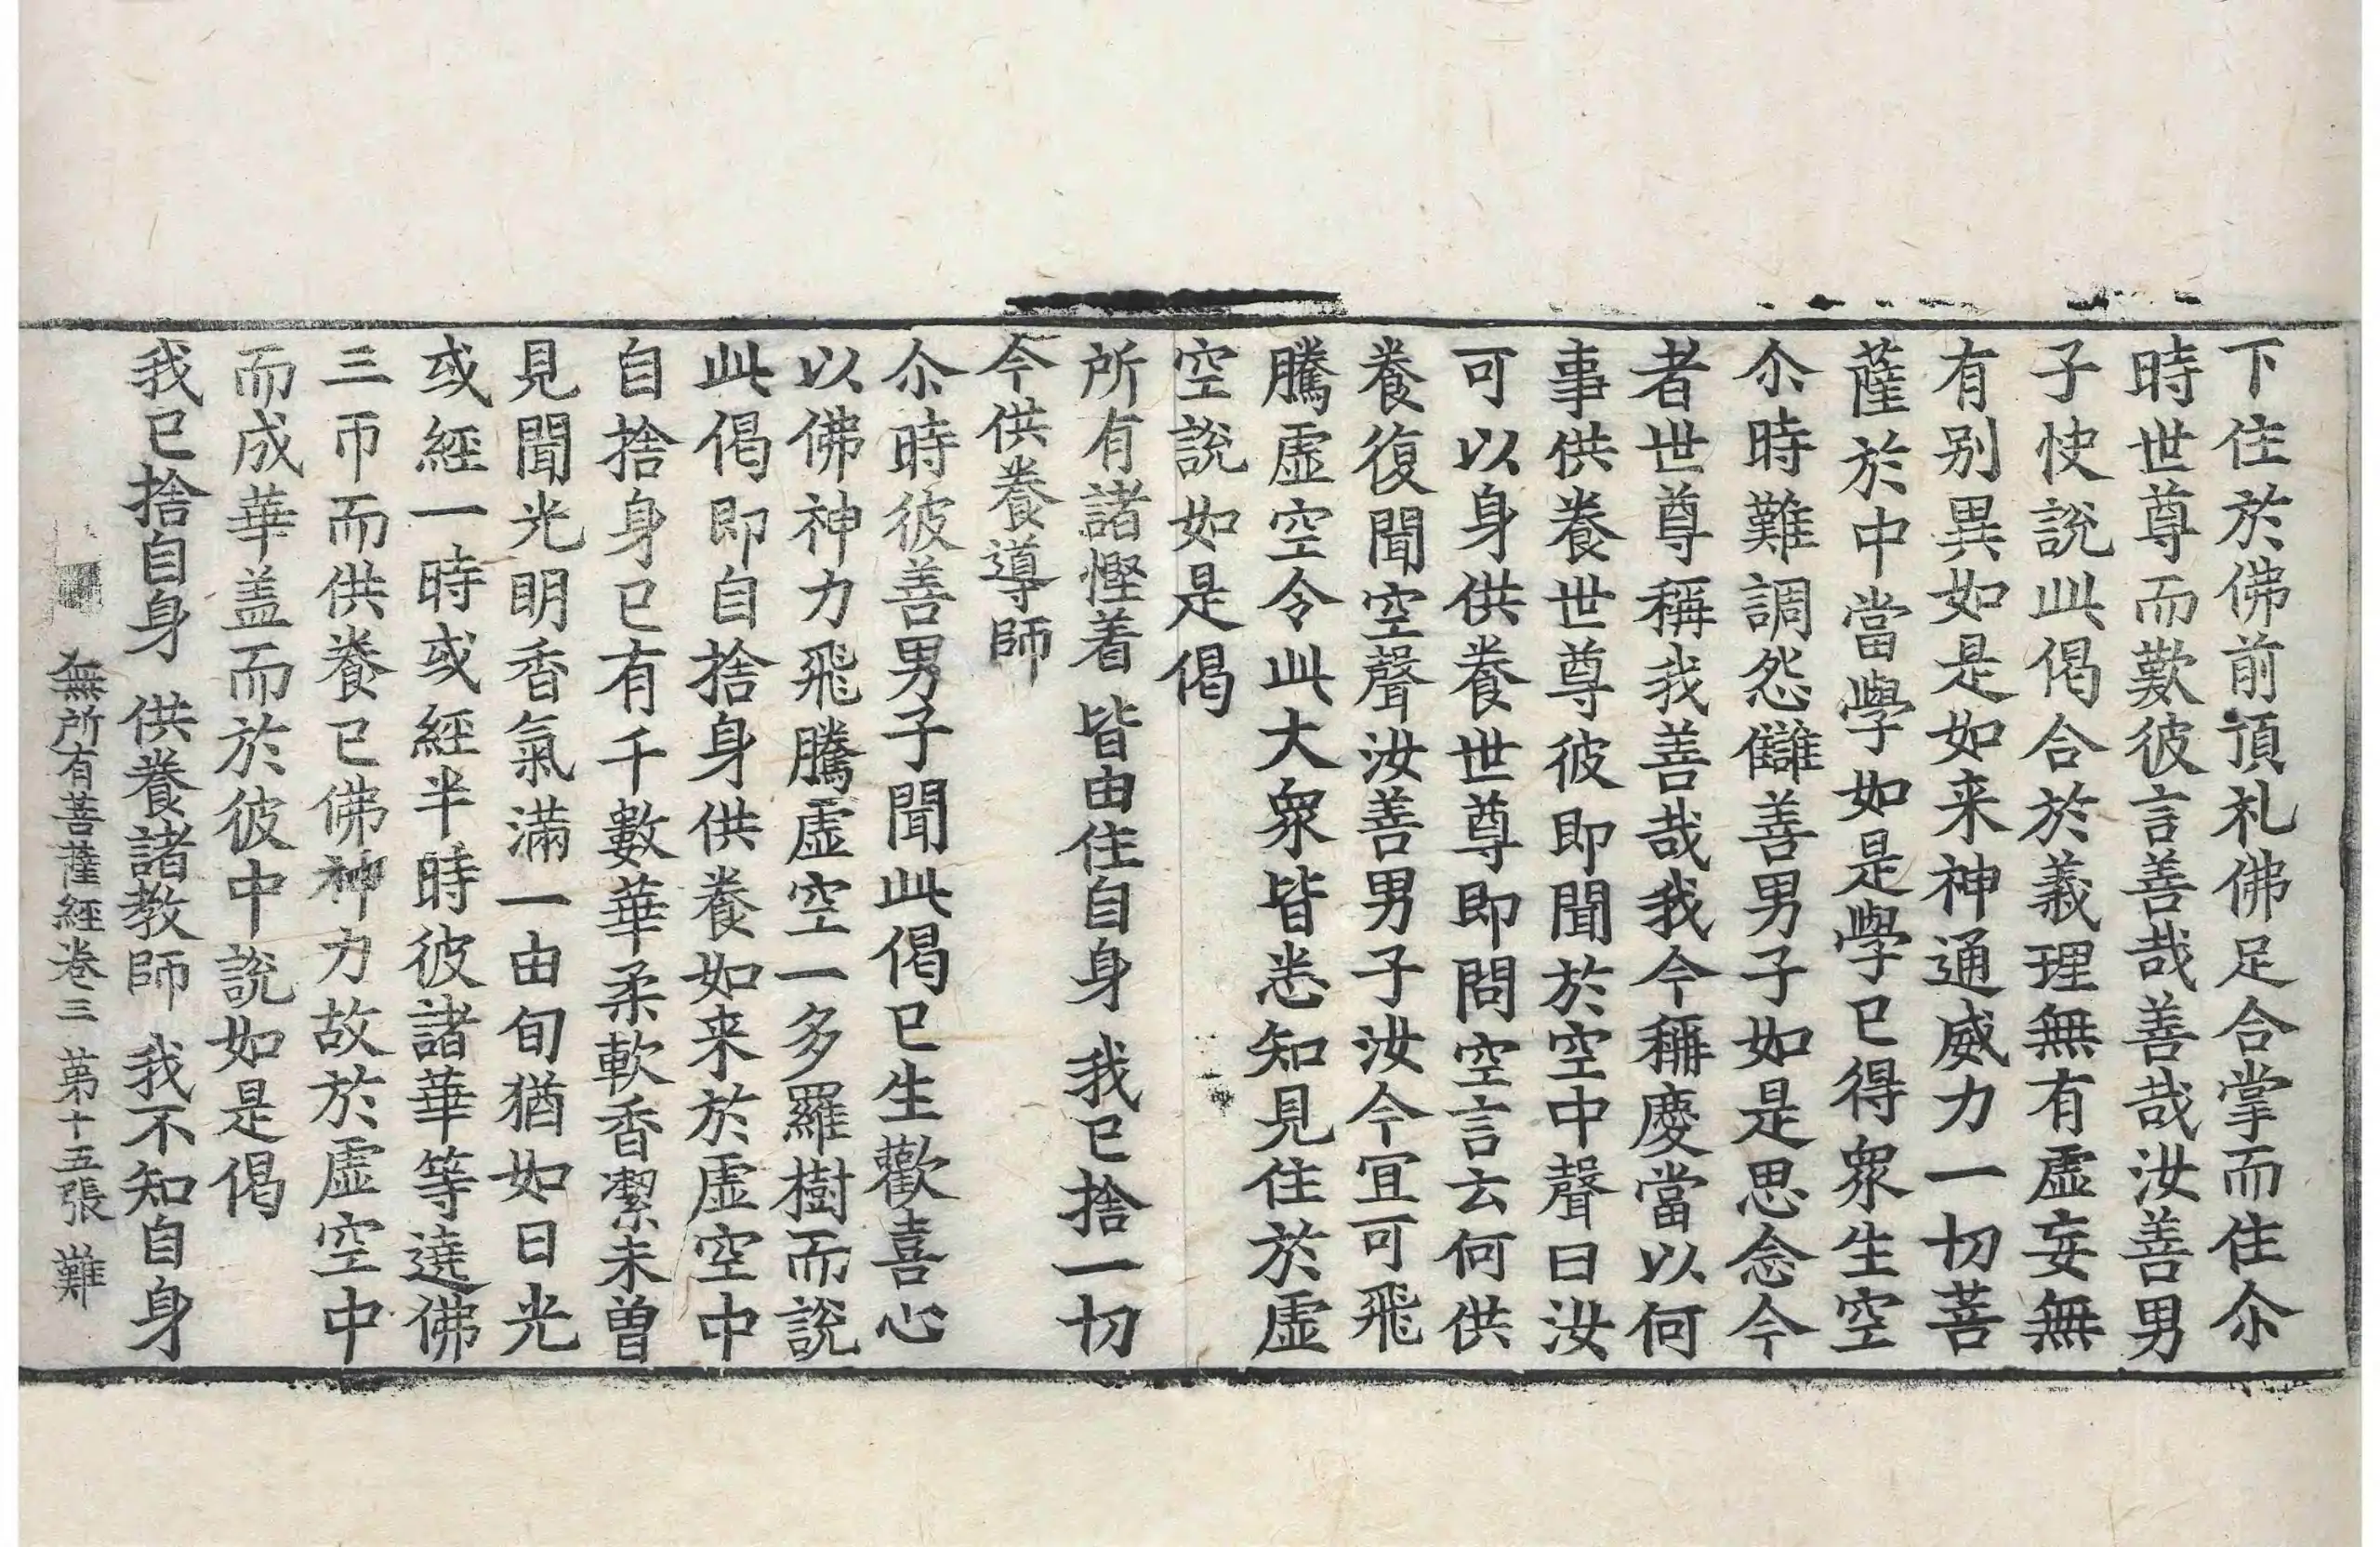 下住於佛前頂礼佛足合掌而住尒
時世尊而歎彼言善哉善哉汝善男
子快說此偈合於義理無有虛妄無
有別異如是如来神通威力一切菩
薩於中當學如是學已得衆生空
尒時難調怨讎善男子如是思念今
者世尊稱我善哉我今稱慶當以何
事供養世尊彼即聞於空中聲曰汝
可以身供養世尊即問空言云何供
養復聞空聲汝善男子汝今宜可飛
騰虛空令此大衆皆悉知見住於虛
空說如是偈
所有諸慳着 皆由住自身 我已捨一切
今供養導師
尒時彼善男子聞此偈已生歡喜心
以佛神力飛騰虛空一多羅樹而說
此偈即自捨身供養如来於虛空中
自捨身已有千數華柔軟香潔未曾
見聞光明香氣滿一由旬猶如日光
或經一時或經半時彼諸華等遶佛
三帀而供養已佛神力故於虛空中
而成華盖而於彼中說如是偈
我已捨自身 供養諸教師 我不知自身
無所有菩薩經卷三 第十五張 難